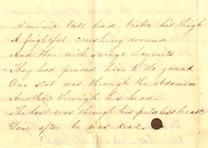 A minnie ball had broke his thigh
A frightful crushing wound
And then with savage bayonets
They had pinned him to the ground
One shot was through the abdomen
Another through his head
The last was through his pulseless breast
Done after he was dead